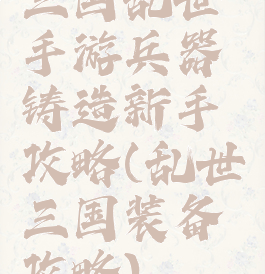 三国乱世
手游兵器
铸造新手
攻略(乱世
三国装备
攻略)